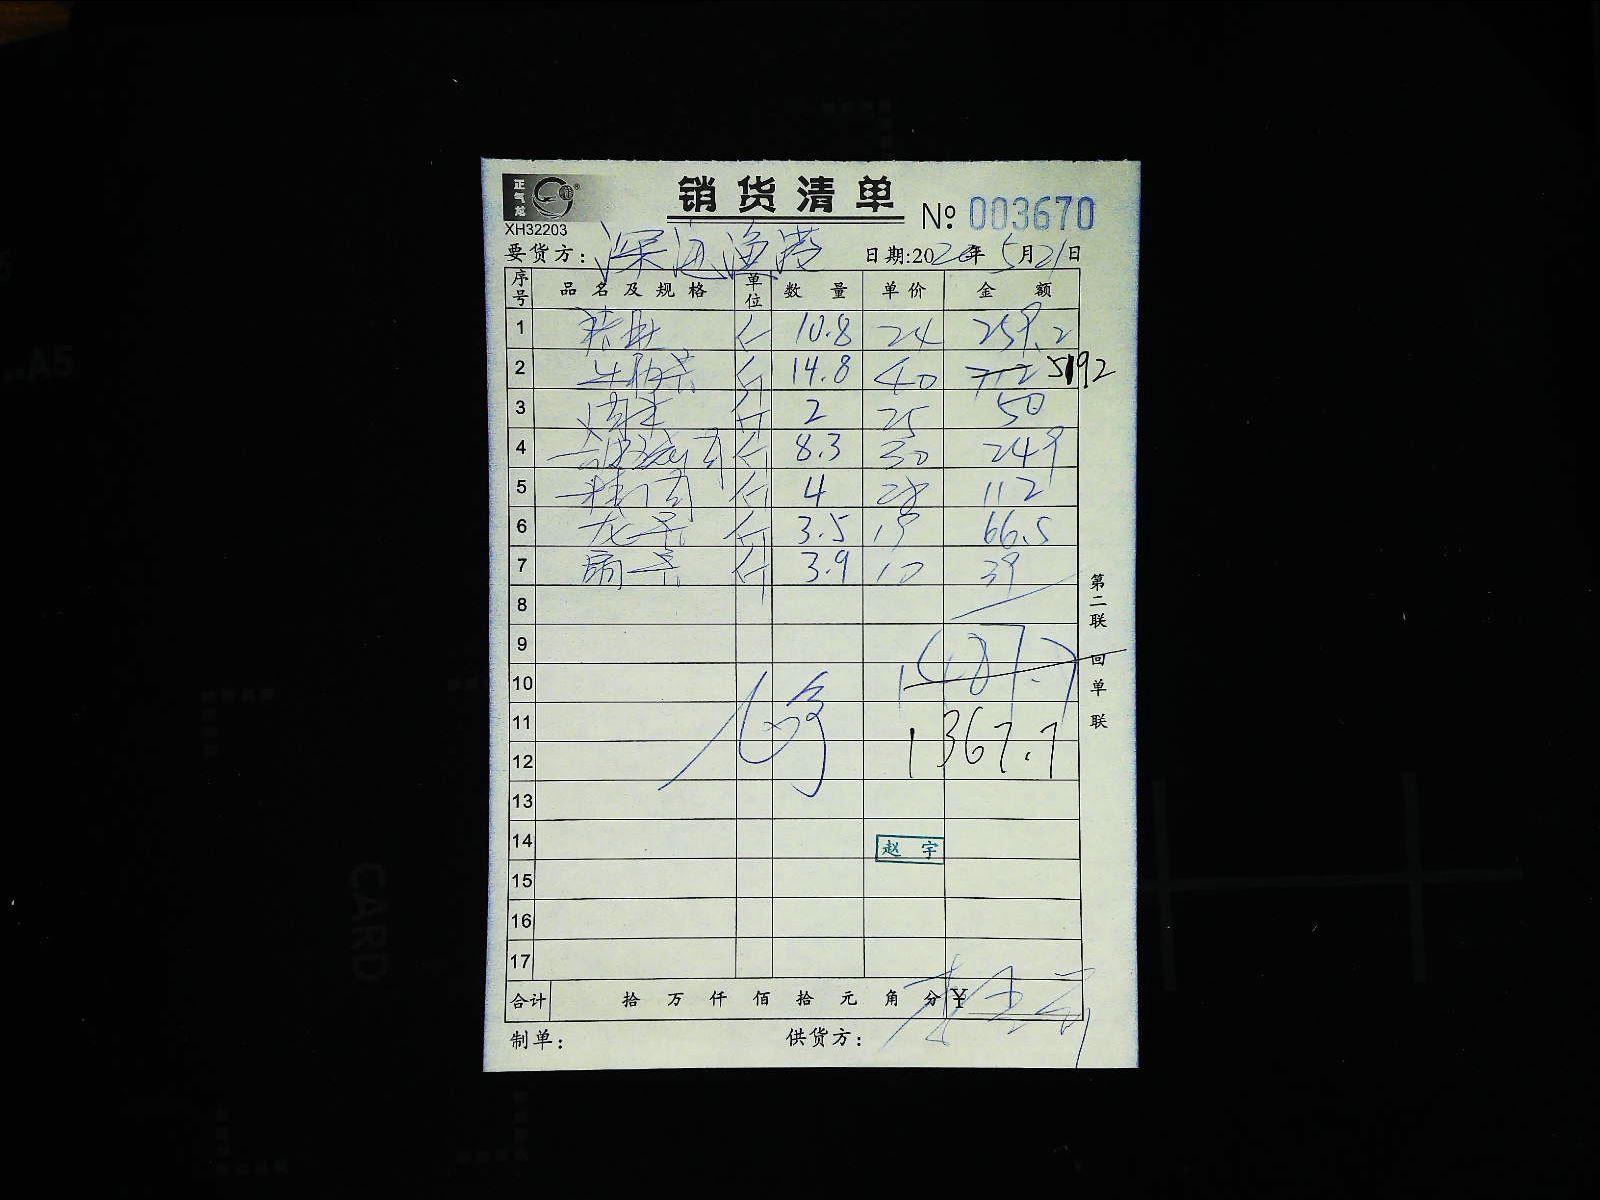 正气龙
销货清单
№ 003670
XH32203
要货方: 深远渔港 日期:2020年5月21日
序号 品名及规格 单位 数量 单价 金额
1 斤 10.8 24 259.2
2 斤 14.8 40 712 592
3 斤 2 25 50
4 斤 8.3 30 249
5 斤 4 28 112
6 斤 3.5 19 66.5
7 斤 3.9 10 39
8
9
1487.7
10
11
1367.7
12
13
14
赵 宇
15
16
17
合计 拾 万 仟 佰 拾 元 角 分 ¥
制单: 供货方:
第二联 回单联
A5
CARD